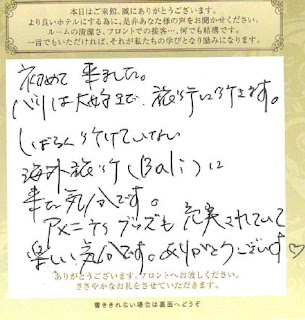 本日はご来館、誠にありがとうございます。
より良いホテルにする為に、是非あなた様の声をお聞かせください。
ルームの清潔さ、フロントでの接客…、何でも結構です。
一言でもいただければ、それが私たちの学びとなり励みになります。
初めて来ました。
バリは大好きで、旅行に行きます。
しばらく行けていない
海外旅行(Bali)に
来た気分です。
アメニティグッズも充実されていて
楽しい気分です。ありがとうございます♡
ありがとうございます。フロントへお渡しください。
ささやかなお礼をさせていただきます。
書ききれない場合は裏面へどうぞ